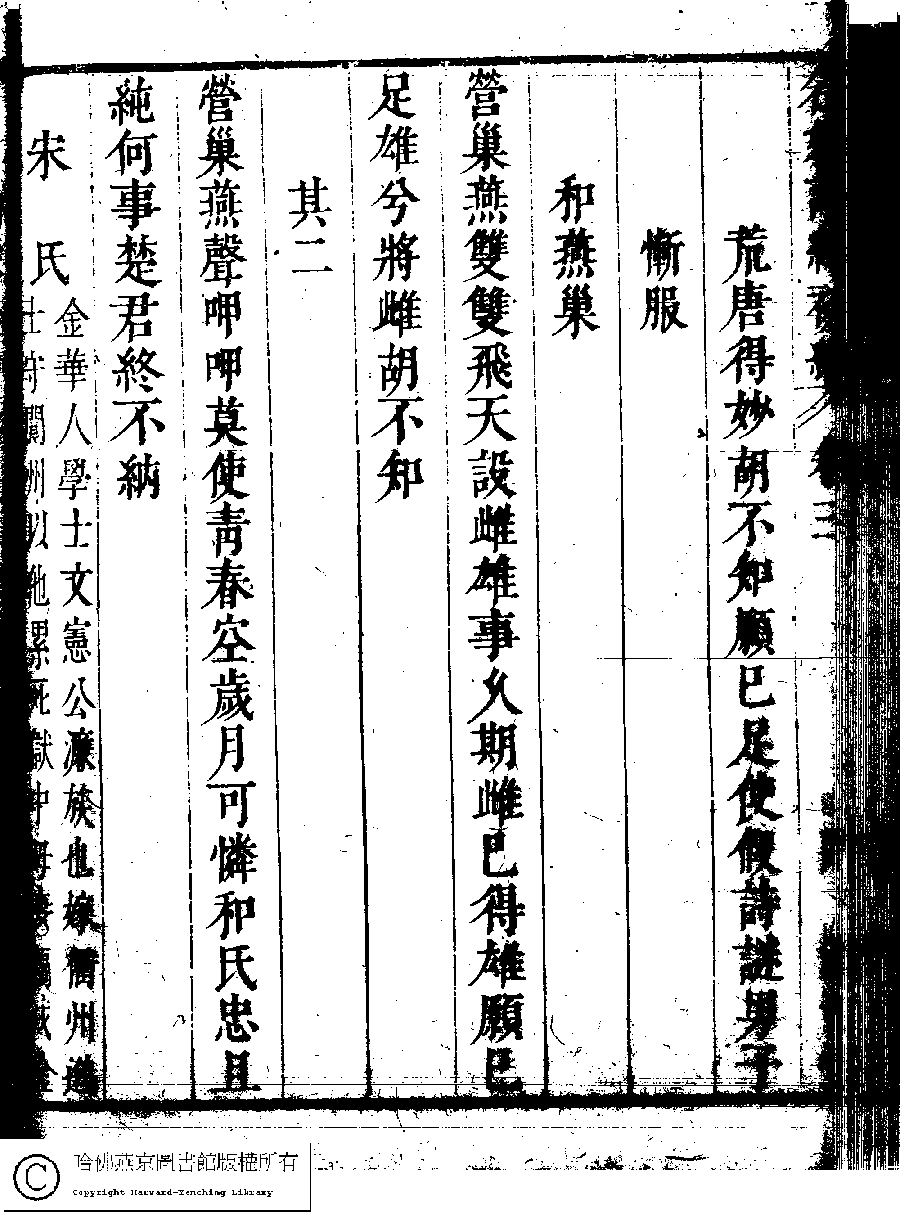 卷三
荒唐得妙胡不知願已足使假詩謎男子
慚服
和燕巢
營巢燕雙雙飛天設雌雄事久期雌巳得雄願巳
足雄兮將雌胡不知
其二
營巢燕聲呷呷莫使青春空歲月可憐和氏忠且
純何事楚君終不納
宋氏
金華人學士文憲公濂族也嫁衢州
士守閬州以他累死獄中母妻
哈佛燕京圖書館版權所有
Copyright Harvard-Yenching Library